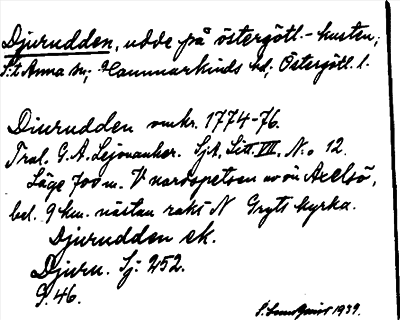 Djurudden, udde på östergötl.-kusten;
S:t Anna sn; Hammarkinds hd; Östergötl. l.
Diurudden omkr. 1774-76.
Tral. G. A. Lejonanker. SjK, Litt. VII, N:o 12.
Läge 700 m. V nordspetsen av ön Axelsö,
bel. 9 km. nästan rakt N Gryts kyrka.
Djurudden ek.
Djuru. Sj: 252.
G. 46.
S. Lundquist 1939.